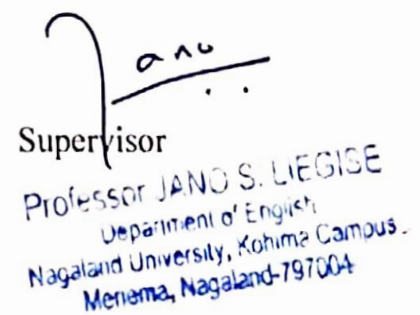 Jano
Supervisor
Professor JANO S. LIEGISE
Department of English
Nagaland University, Kohima Campus
Meriema, Nagaland-797004